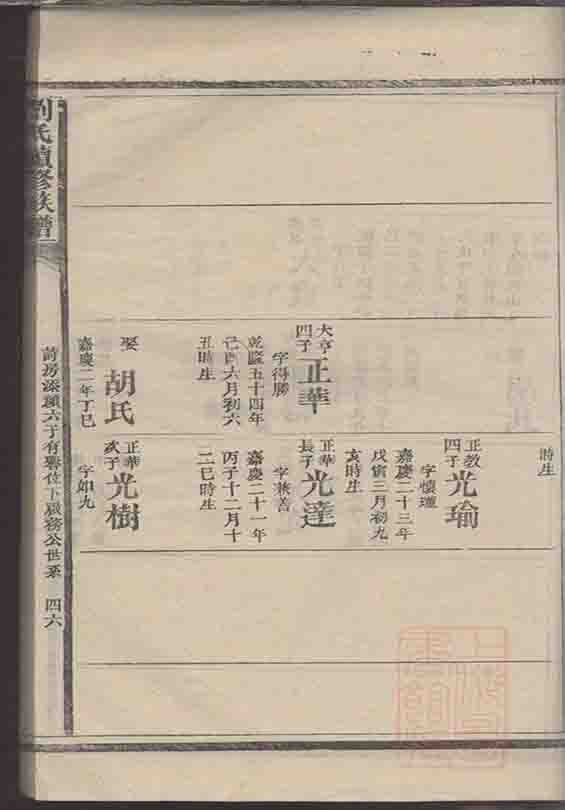 時生
大亨四子
正華
字得勝
乾隆五十四年
己酉六月初六
丑時生
娶
胡氏
嘉慶二年丁巳
正教四子
光瑜
字懷瓊
嘉慶二十三年
戊寅三月初九
亥時生
正華長子
光達
字兼善
嘉慶二十一年
丙子十二月十
二巳時生
正華次子
光樹
字如九
劉氏續修族譜
四六